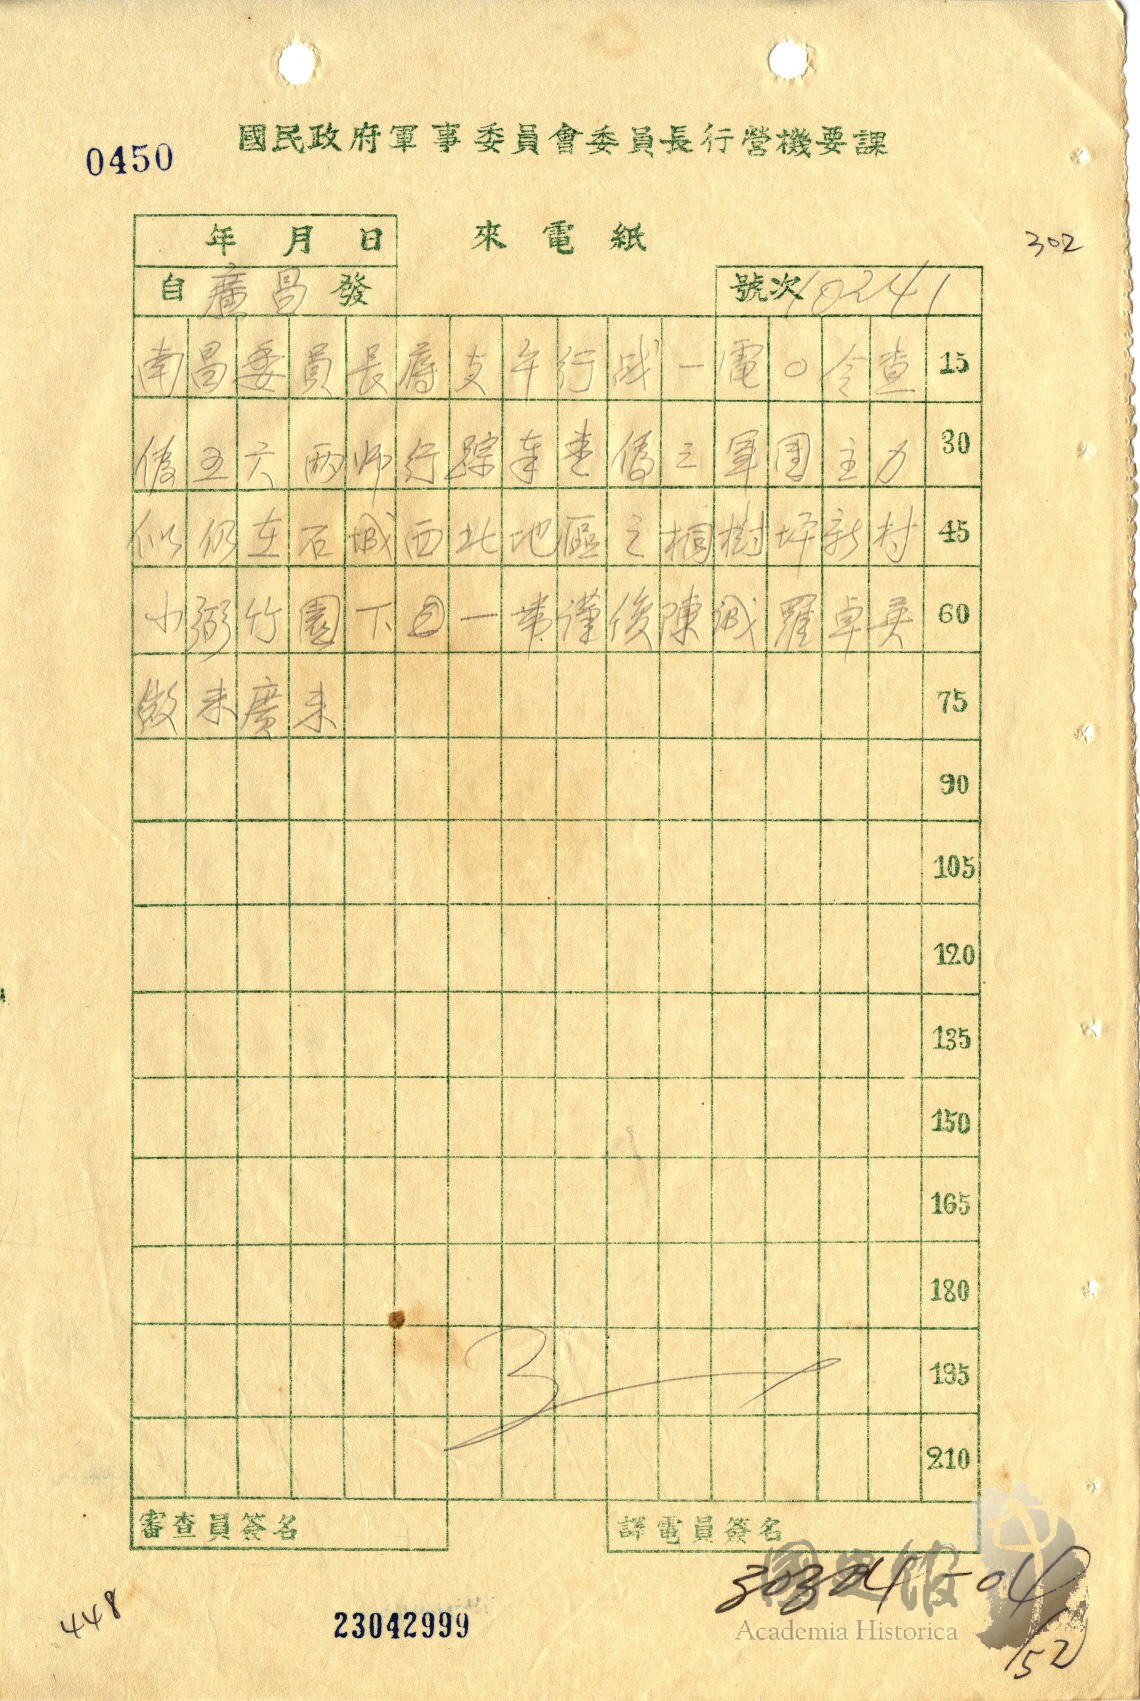 國民政府軍事委員會委員長行營機要課
0450
年 月 日
來電紙
302
自廣昌發
號次 10241
南昌委員長蔣支午行战一電○令查 15
偽五六兩师行踪奉查偽三軍团主力 30
似仍在石城西北地區之桐樹坪新村 45
小 竹園下 一带謹復陳誠羅卓英 60
微未廣未 75
90
105
120
135
150
165
180
195
210
審查員簽名
譯電員簽名
448
23042999
國史館
Academia Historica
152